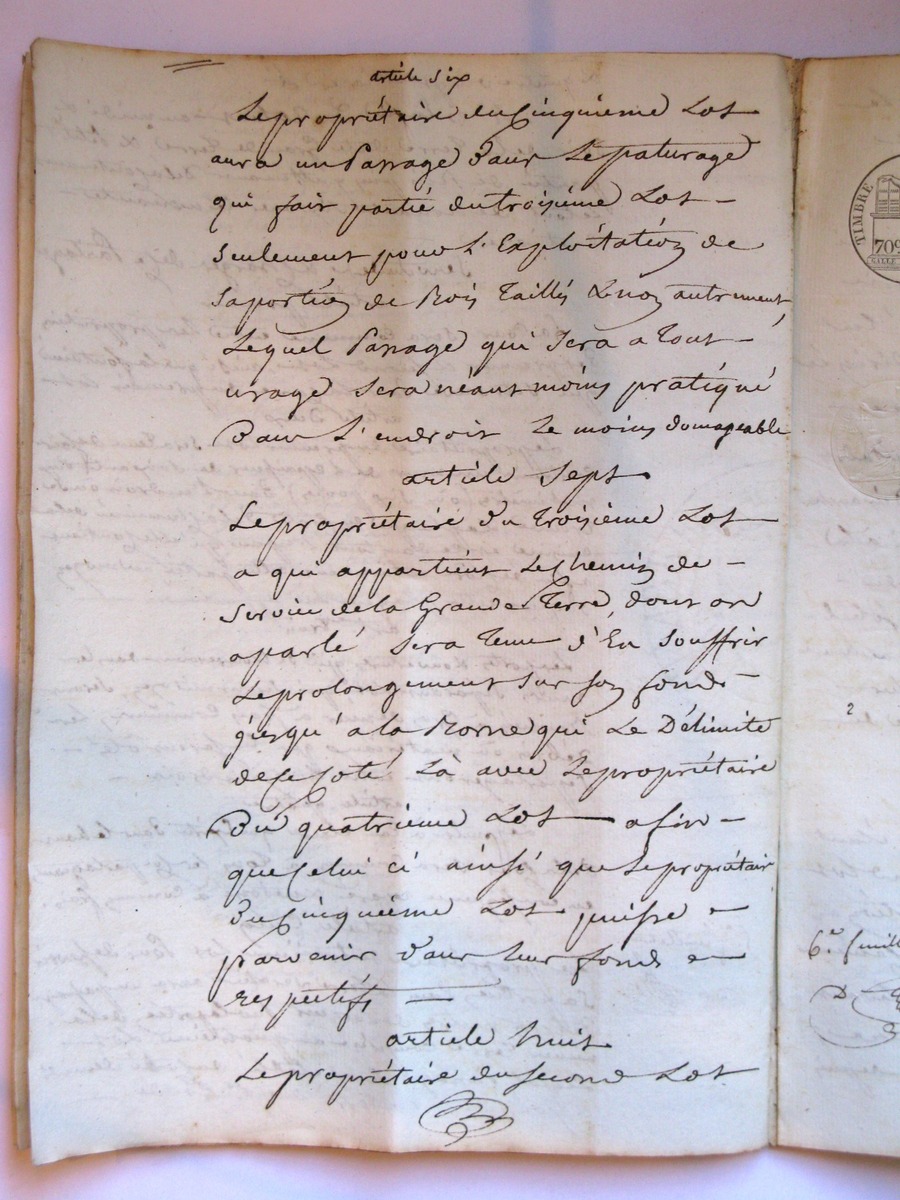 article Six
Le propriétaire du Cinquième Lot
aura un Passage dans Le paturage
qui fait partie du troisième Lot
seulement pour L'Exploitation de
sa portion de Bois Taillis & non autrement,
Lequel Passage qui sera a tout
usage sera néant moins pratiqué
dans L'endroit Le moins domageable
article Sept
Le propriétaire du troisième Lot
a qui appartient Le Chemin de
Service de la Grande Terre, dont on
a parlé sera tenu d'En souffrir
Le prolongement sur son fonds
jusqu'à la Borne qui Le Délimite
de Ce Coté Là avec Le propriétaire
Du quatrième Lot afin
que Celui ci ainsi que Le propriétaire
du Cinquième Lot puisse
parvenir dans leur fonds
respectifs
article huit
Le propriétaire du second Lot
TIMBRE
709
2
6e. feuill